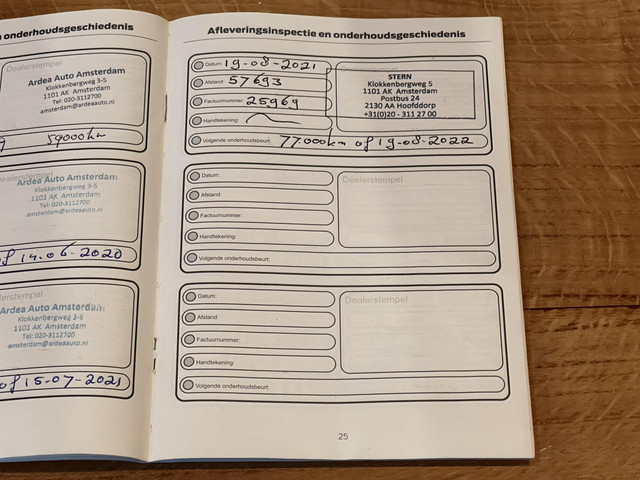 onderhoudsgeschiedenis
Dealerstempel
Ardea Auto Amsterdam
Klokkenbergweg 3-5
1101 AK Amsterdam
Tel: 020-3112700
amsterdam@ardeaauto.nl
59000km
Dealerstempel
Ardea Auto Amsterdam
Klokkenbergweg 3-5
1101 AK Amsterdam
Tel: 020-3112700
amsterdam@ardeaauto.nl
of 14-06-2020
erstempel
Ardea Auto Amsterdam
Klokkenbergweg 3-5
1101 AK Amsterdam
Tel: 020-3112700
amsterdam@ardeaauto.nl
of 15-07-2021
Afleveringsinspectie en onderhoudsgeschiedenis
Datum: 19-08-2021
Afstand: 57693
Factuurnummer: 25969
Handtekening:
STERN
Klokkenbergweg 5
1101 AK Amsterdam
Postbus 24
2130 AA Hoofddorp
+31(0)20 - 311 27 00
Volgende onderhoudsbeurt: 77.000km of 19-08-2022
Datum:
Afstand:
Factuurnummer:
Handtekening:
Dealerstempel
Volgende onderhoudsbeurt:
Datum:
Afstand:
Factuurnummer:
Handtekening:
Dealerstempel
Volgende onderhoudsbeurt:
25